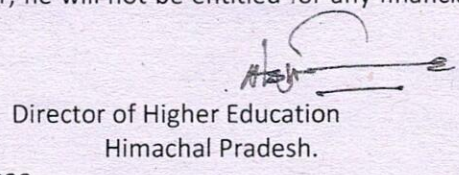 he will not be entitled for any financi
Director of Higher Education
Himachal Pradesh.